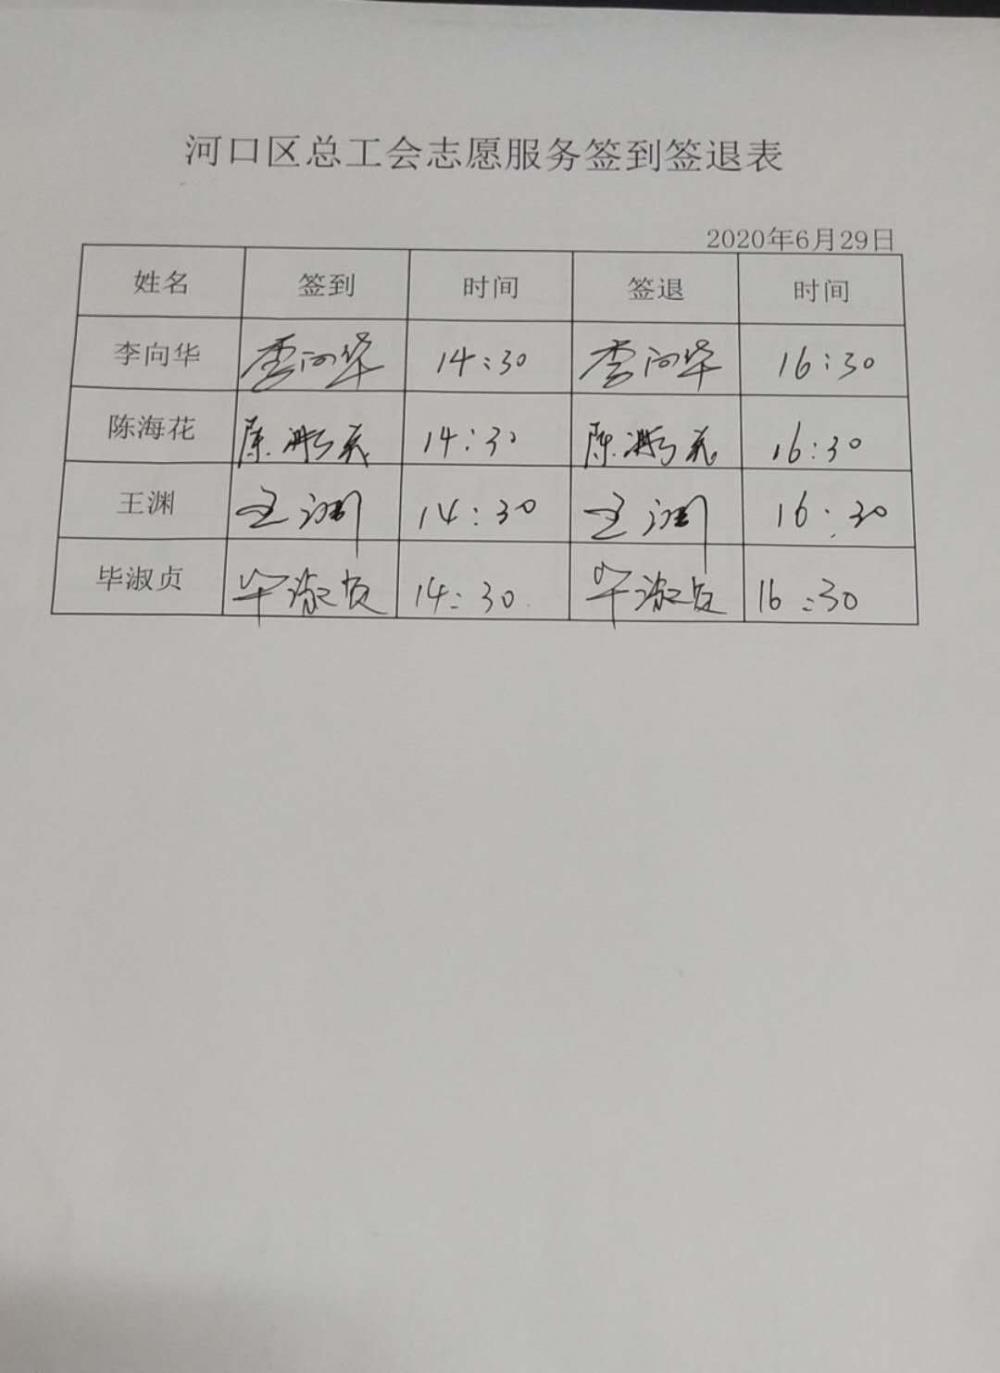 河口区总工会志愿服务签到签退表
2020年6月29日
姓名 签到 时间 签退 时间
李向华 李向华 14:30 李向华 16:30
陈海花 陈海花 14:30 陈海花 16:30
王渊 王渊 14:30 王渊 16:30
毕淑贞 毕淑贞 14:30 毕淑贞 16:30